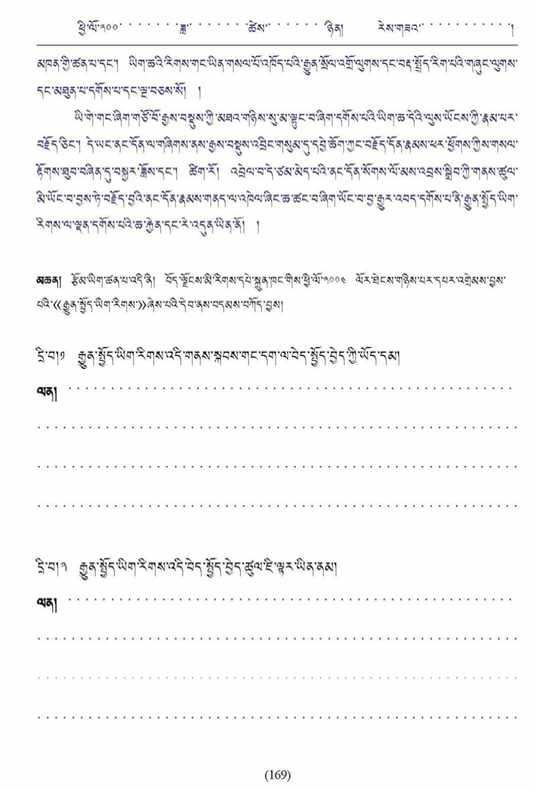 ཕྱི་ལོ་༢༠༠་་་་་་་་་ཟླ་་་་་་་་་་ཚེས་་་་་་་་་ཉིན། རེས་གཟའ་་་་་་་་་་་་་།
མཁན་གྱི་ཚན་པ་དང་། ཡིག་ཆའི་རིགས་གང་ཡིན་གསལ་པོ་འཁོད་པའི་རྒྱུན་སྲོལ་འགྲོ་ལུགས་དང་བརྡ་སྤྲོད་རིག་པའི་གཞུང་ལུགས་
དང་མཐུན་པ་དགོས་པ་དང་ལྔ་བཅས་སོ། །
ཡི་གེ་གང་ཞིག་གཙོ་བོ་རྒྱས་བསྡུས་ཀྱི་མཐའ་གཉིས་སུ་མ་ལྷུང་བ་ཞིག་དགོས་པའི་ཡིག་ཆ་དེའི་ལུས་ཡོངས་ཀྱི་རྣམ་པར་
བརྗོད་ཅིང་། དེ་ཡང་ནང་དོན་ལ་གཞིགས་ནས་རྒྱས་བསྡུས་འབྲིང་གསུམ་དུ་དབྱེ་ཆོག་ཀྱང་བརྗོད་དོན་རྣམས་ཕར་ཕྱོགས་ཀྱིས་གསལ་
རྟོགས་ཐུབ་བཞིན་དུ་བསྐྱར་རློས་དང་། ཚིག་རོ། འབྲེལ་བ་དེ་ཙམ་མེད་པའི་ནང་དོན་སོགས་ལོ་མས་འབྲས་སྒྲིབ་ཀྱི་གནས་ཚུལ་
མི་ཡོང་བ་བྱས་ཏེ་བརྗོད་བྱའི་ནང་དོན་རྣམས་གནད་ལ་འཁེལ་ཞིང་ཆ་ཚང་བ་ཞིག་ཡོང་བ་བྱ་རྒྱུར་འབད་དགོས་པ་ནི་རྒྱུན་སྤྱོད་ཡིག་
རིགས་ལ་ལྡན་དགོས་པའི་ཆ་རྐྱེན་དང་རེ་འདུན་ཡིན་ནོ། །
མཆན། རྩོམ་ཡིག་ཚན་པ་འདི་ནི། བོད་ལྗོངས་མི་རིགས་དཔེ་སྐྲུན་ཁང་གིས་ཕྱི་ལོ་༢༠༠༤ ལོར་ཐེངས་གཉིས་པར་དཔར་འགྲེམས་བྱས་
པའི་《རྒྱུན་སྤྱོད་ཡིག་རིགས་》ཞེས་པའི་དེབ་ནས་བདམས་བཀོད་བྱས།
དྲི་བ།༡ རྒྱུན་སྤྱོད་ཡིག་རིགས་འདི་གནས་སྐབས་གང་དག་ལ་བེད་སྤྱོད་བྱེད་ཀྱི་ཡོད་དམ།
ལན།
དྲི་བ།༢ རྒྱུན་སྤྱོད་ཡིག་རིགས་འདི་བེད་སྤྱོད་བྱེད་ཚུལ་ཇི་ལྟར་ཡིན་ནམ།
ལན།
(169)